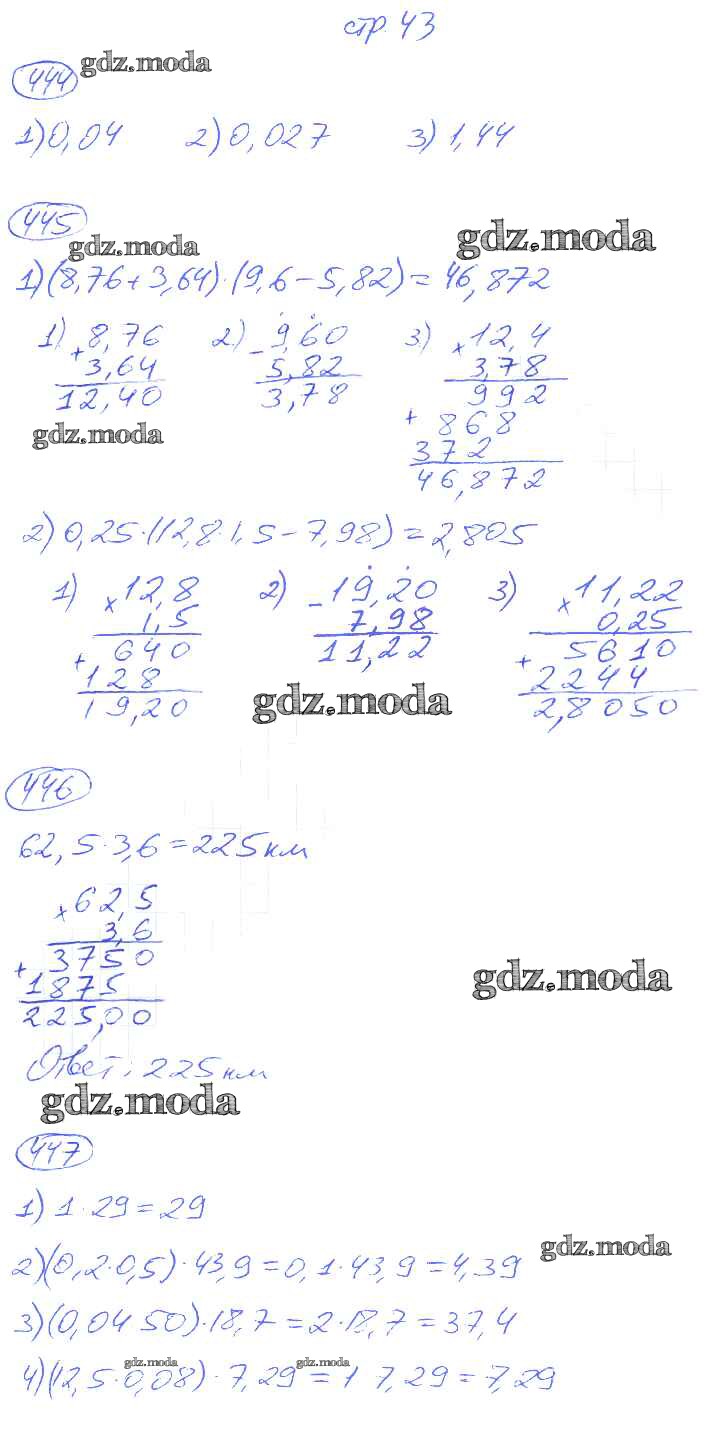 стр 43
444 gdz.moda
1) 0,04 2) 0,027 3) 1,44
445
gdz.moda gdz.moda
1) (8,76 + 3,64) · (9,6 – 5,82) = 46,872
1) 8,76 2) 9,60 3) × 12,4
+ 3,64 – 5,82 3,78
12,40 3,78 992
gdz.moda + 868
372
46,872
2) 0,25 · (12,8 · 1,5 – 7,98) = 2,805
1) × 12,8 2) – 19,20 3) × 11,22
1,5 7,98 0,25
+ 640 11,22 + 5610
128 2244
19,20 gdz.moda 2,8050
446
62,5 · 3,6 = 225 км
× 62,5
3,6
+ 3750
1875 gdz.moda
225,00
Ответ: 225 км
gdz.moda
447
1) 1 · 29 = 29
gdz.moda
2) (0,2 · 0,5) · 43,9 = 0,1 · 43,9 = 4,39
3) (0,04 50) · 18,7 = 2 · 18,7 = 37,4
gdz.moda gdz.moda
4) (12,5 · 0,08) · 7,29 = 1 7,29 = 7,29